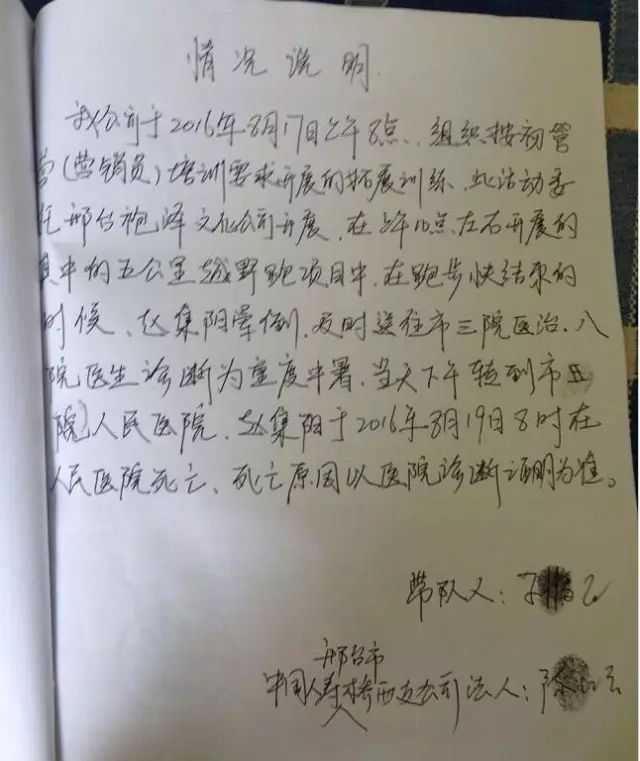 情况说明
我公司于2016年8月17日上午8点、组织按初管
营(营销员)培训要求开展的拓展训练、此活动委
托邢台袍泽文化公司开展、在上午10点左右开展的
其中的五公里越野跑项目中、在跑步快结束的
时候、赵集阴晕倒、及时送往市三院医治、入
院医生诊断为重度中暑、当天下午转到市
院)人民医院、赵集阳于2016年8月19日8时在
人民医院死亡、死亡原因以医院诊断证明为准。
带队人:
邢台市
中国人寿桥西支公司法人: